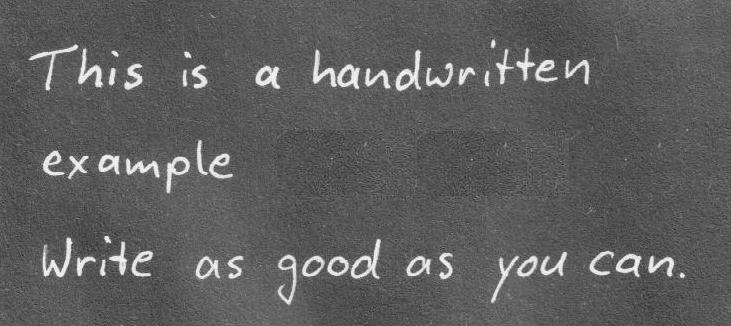 This is a handwritten
example
Write as good as you can.